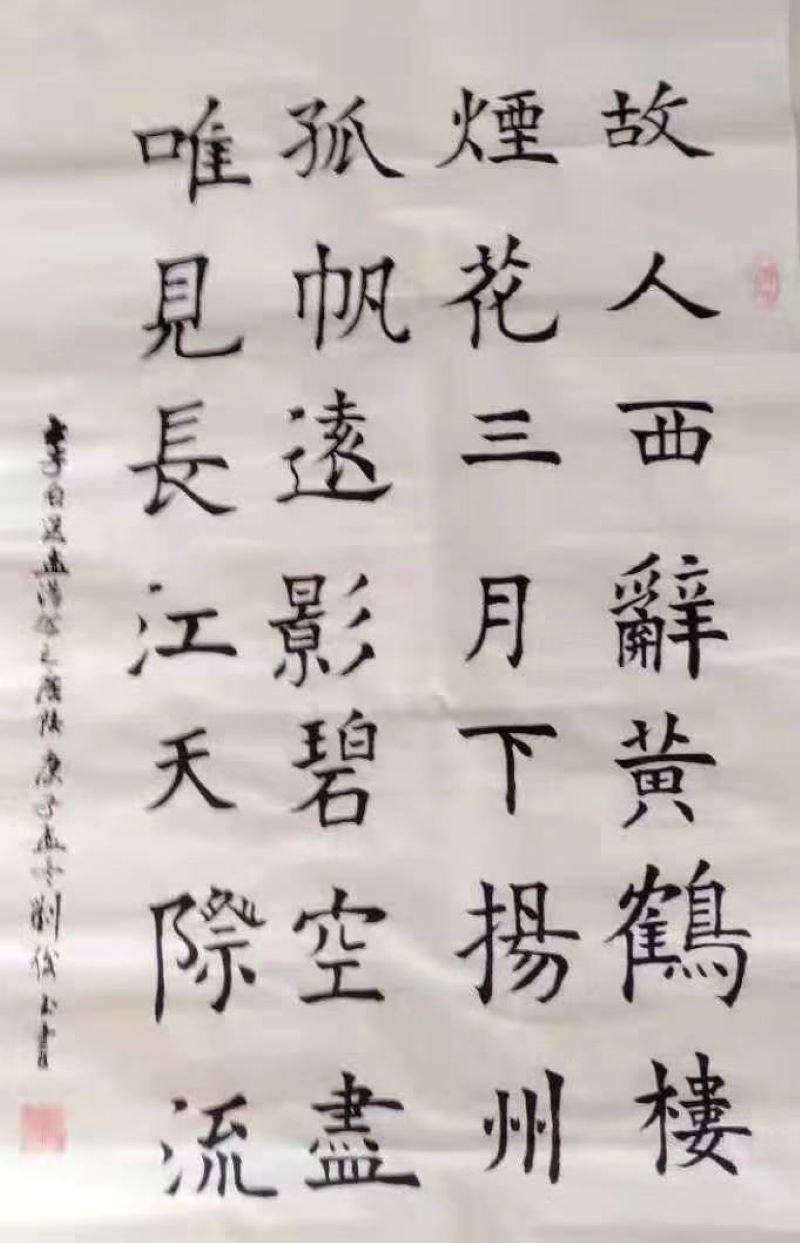 故人西辭黃鶴樓
煙花三月下揚州
孤帆遠影碧空盡
唯見長江天際流
李白送孟浩然之廣陵 庚子孟冬劉俊玉書